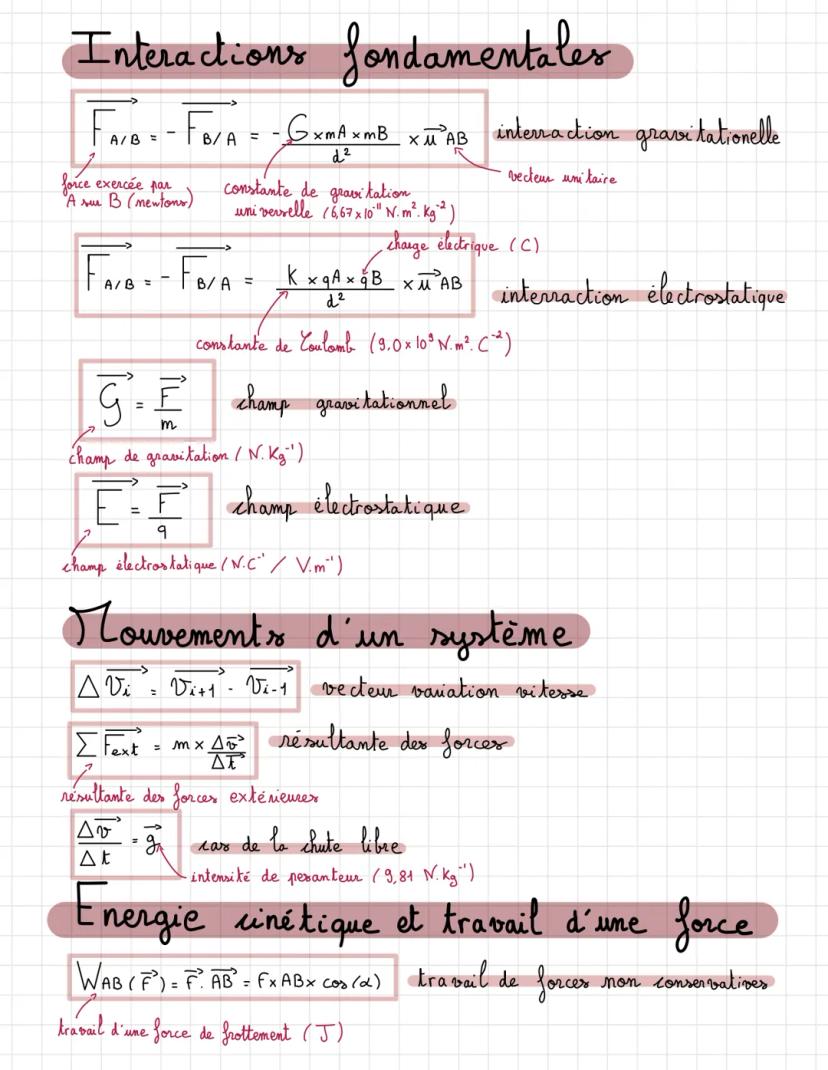 Interactions fondamentales
F A/B = - F B/A = - G x mA x mB / d² x u AB interraction gravitationelle
force exercée par A sur B (newtons)
constante de gravitation universelle (6,67 x 10⁻¹¹ N.m².Kg⁻²)
vecteur unitaire
charge électrique (C)
F A/B = - F B/A = K x qA x qB / d² x u AB interraction électrostatique
constante de Coulomb (9,0 x 10⁹ N.m².C⁻²)
G = F / m champ gravitationnel
champ de gravitation (N.Kg⁻¹)
E = F / q champ électrostatique
champ électrostatique (N.C⁻¹ / V.m⁻¹)
Mouvements d'un système
Δ Vi = Vi+1 - Vi-1 vecteur variation vitesse
Σ Fext = m x Δv / Δt résultante des forces
résultante des forces extérieures
Δv / Δt = g cas de la chute libre
intensité de pesanteur (9,81 N.Kg⁻¹)
Energie cinétique et travail d'une force
WAB (F) = F . AB = F x AB x cos (α) travail de forces non conservatives
travail d'une force de frottement (J)